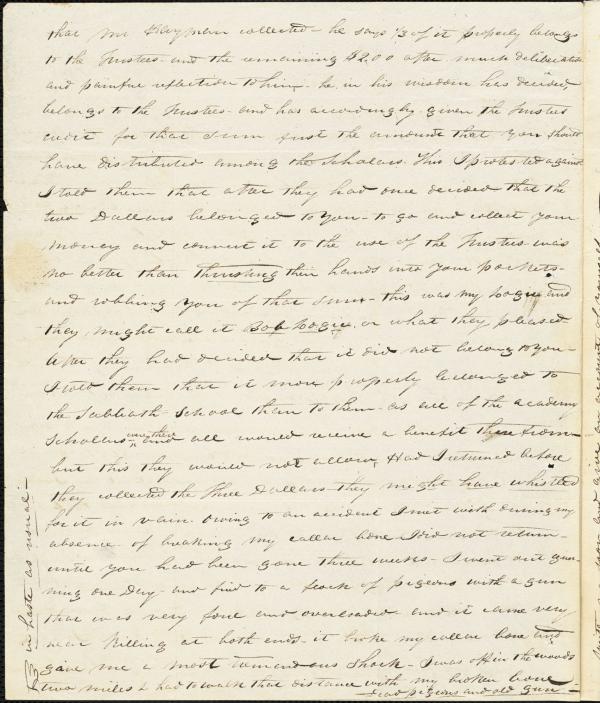 that Mr Clayman collected - he says 1/3 of it properly belongs
to the Trustees - and the remaining $2.00 after much deliberation
and painful reflection to him - he in his wisdom has decided,
belongs to the Trustees - and has accordingly given the Trustees
credit for that sum just the amount that you should
have distributed among the Scholars. This I protested against
I told them that after they had once decided that the
two Dallars belonged to you - to go and collect your
money and convert it to the use of the Trustees was
no better than thrusting their hands into your pockets -
and robbing you of that sum - this was my Logic and
they might call it Bob Logic, or what they pleased
After they had decided that it did not belong to you -
I told them that it more properly belonged to
the Sabbath School than to them - as all of the academy
Scholars were there and all would receive a benefit therefrom
but this they would not allow, Had I returned before
they collected the Three Dallars they might have whistled
for it in vain. Owing to an accident I met with during my
absence - of breaking my collar bone I did not return -
until you had been gone three weeks - I went out gun
ning one Day - and fird to a flock of pigeons with a gun
that was very foul and overloaded - and it came very
near killing at both ends - it broke my collar bone and
gave me a most tremendous shock - I was off in the woods
two miles & had to walk that distance with my broken bone -
dead pigeons and old gun -
in haste as usual -